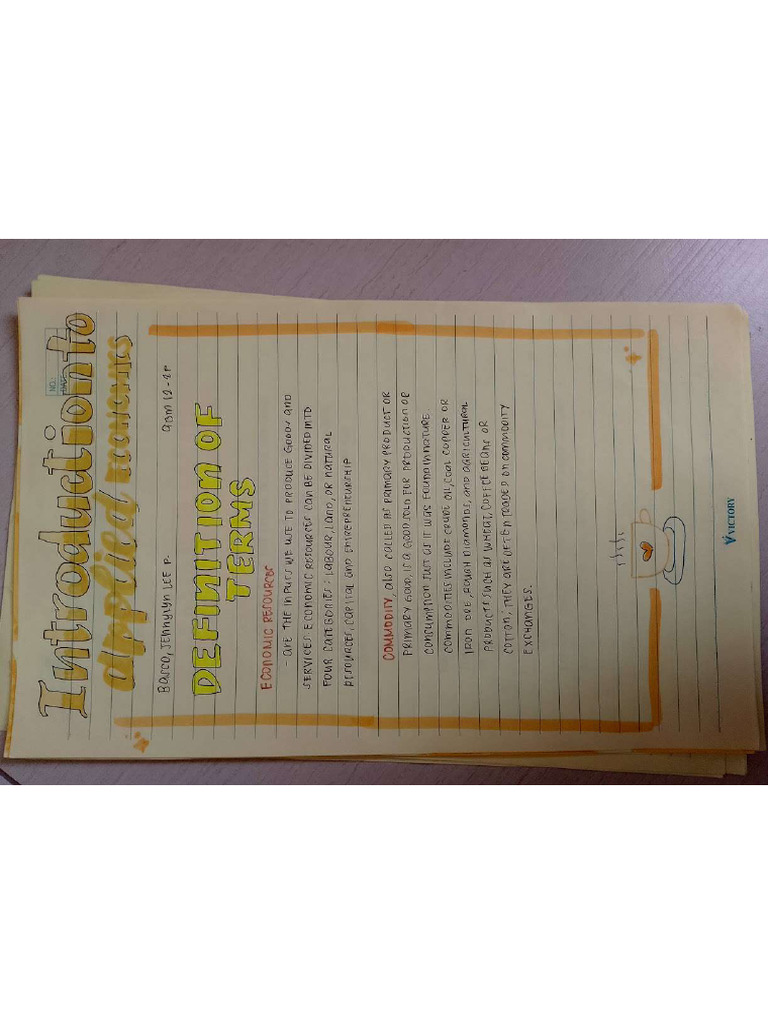 NO.:
DATE
Introduction to
applied economics
Bacco, Jennylyn Lee P.
ABM 12-4P
DEFINITION OF
TERMS
ECONOMIC RESOURCES
- ARE THE INPUTS WE USE TO PRODUCE GOODS AND
SERVICES. ECONOMIC RESOURCES CAN BE DIVIDED INTO
FOUR CATEGORIES: LABOUR, LAND, OR NATURAL
RESOURCES, CAPITAL AND ENTREPRENEURSHIP
COMMODITY, ALSO CALLED AS PRIMARY PRODUCT OR
PRIMARY GOOD, IS A GOOD SOLD FOR PRODUCTION OR
CONSUMPTION JUST AS IT WAS FOUND IN NATURE.
COMMODITIES INCLUDE CRUDE OIL, COAL COPPER OR
IRON ORE, ROUGH DIAMONDS, AND AGRICULTURAL
PRODUCTS SUCH AS WHEAT, COFFEE BEANS OR
COTTON; THEY ARE OFTEN TRADED ON COMMODITY
EXCHANGES.
VICTORY